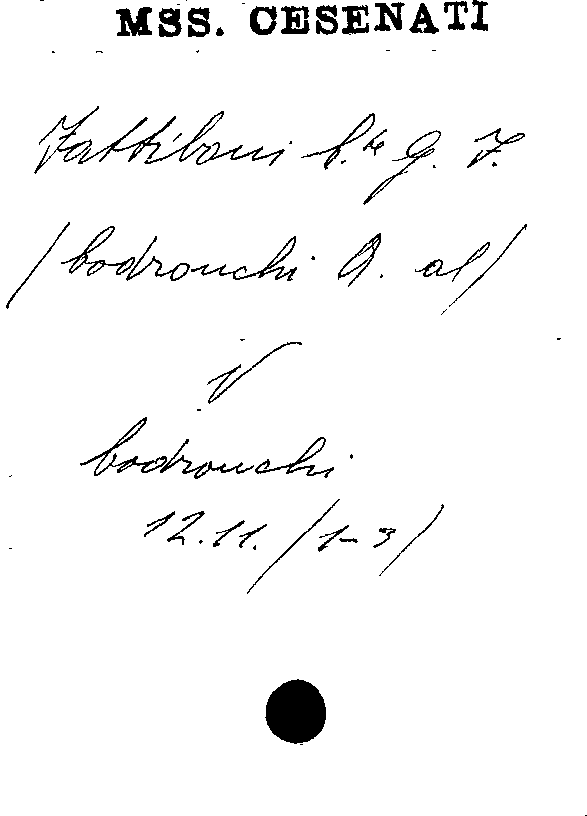 MSS. CESENATI
Fattiboni C.te G. F.
/Codronchi A. al/
V
Codronchi
12.11. /1-3/